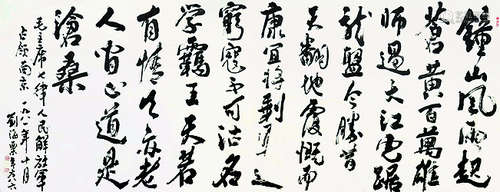 鍾山風雨起
蒼黃百萬雄
師過大江虎踞
龍盤今勝昔
天翻地覆慨而
慷宜將剩勇追
窮寇不可沽名
學霸王天若
有情天亦老
人間正道是
滄桑
毛主席七律人民解放軍
占領南京 年十月
劉海粟